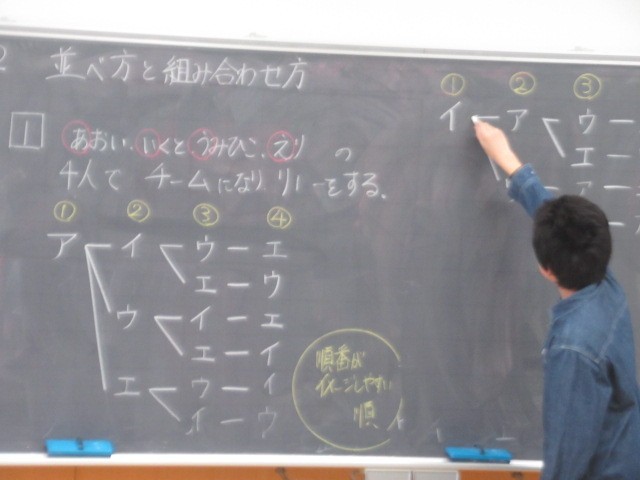 並べ方と組み合わせ方
1
あおい、いくと、うみひこ、えり の
4人で チームになり リレーをする。
① ② ③ ④
ア イ ウ ー エ
エ ー ウ
ウ イ ー エ
エ ー イ
エ ウ ー イ
イ ー ウ
順番が
イメージしやすい
順
① ② ③
イ ー ア ウ ー
エ ー
ア ー